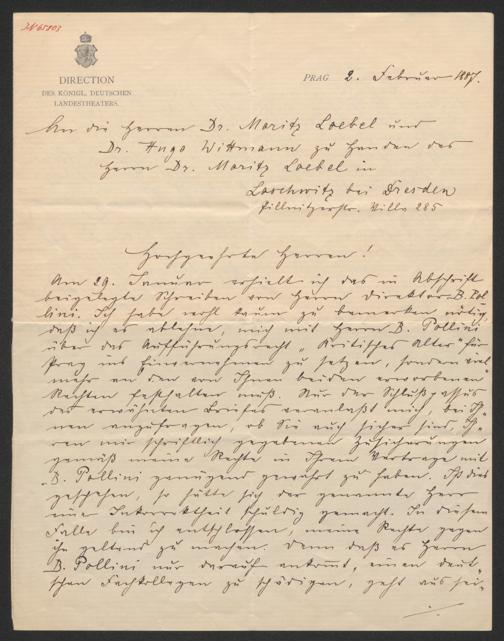 JN 65803
DIRECTION
DES KÖNIGL. DEUTSCHEN
LANDESTHEATERS.
PRAG 2. Februar 1887.
An die Herren Dr. Moritz Loebel und
Dr. Hugo Wittmann zu Handen des
Herrn Dr. Moritz Loebel in
Loschwitz bei Dresden
Pillnitzerstr. Villa 285
Hochgeehrte Herren!
Am 29. Januar erhielt ich das in Abschrift
beigelegte Schreiben von Herrn Direktor B. Pol-
lini. Ich habe wohl kaum zu bemerken nötig,
daß ich es ablehne, mich mit Herrn B. Pollini
über das Aufführungsrecht „Kritisches Alter" für
Prag ins Einvernehmen zu setzen, sondern viel
mehr an den von Ihnen beiden erworbenen
Rechten festhalten muß. Nur der Schlußpassus
des erwähnten Briefes veranlaßt mich, bei Ih-
nen anzufragen, ob Sie auch sicher sind, Ih-
ren mir schriftlich gegebenen Zusicherungen
gemäß meine Rechte in Ihrem Vertrage mit
B. Pollini genügend gewahrt zu haben. Ist dies
geschehen, so hätte sich der genannte Herr
einer Inkorrektheit schuldig gemacht. In diesem
Falle bin ich entschlossen, meine Rechte gegen
ihn geltend zu machen. Denn daß es Herrn
B. Pollini nur darauf ankommt, einen deut-
schen Fachkollegen zu schädigen, geht aus sei-